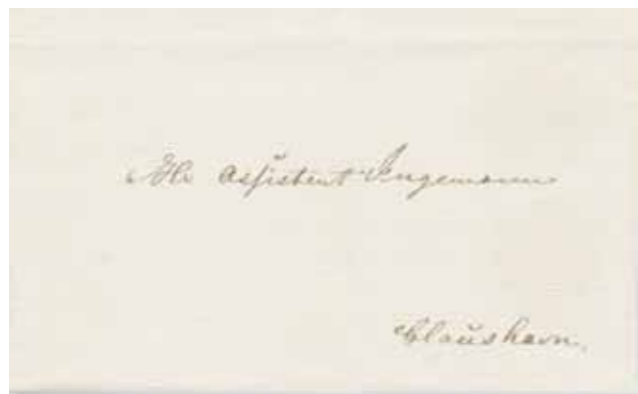 Hr Assistent Ingemann
Claushavn.